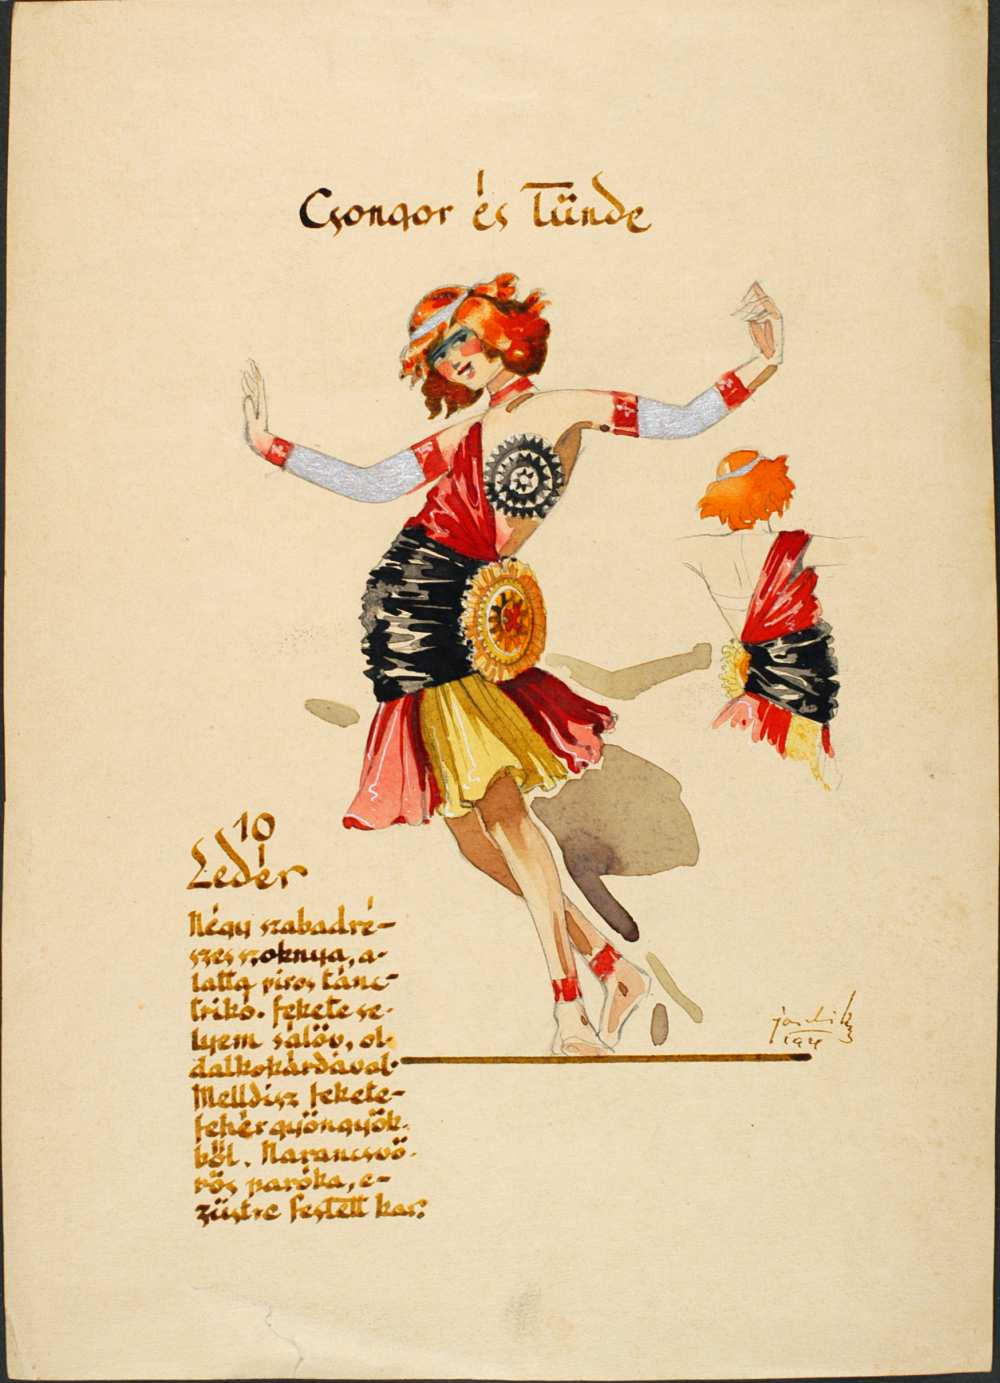 Csongor és Tünde
10
Ledér
Négy szabadré-
szes szoknya, a-
latta piros tánc-
trikó. fekete se-
lyem sálöv, ol-
dalkokárdával.
Melldísz fekete-
fehér gyöngyök-
ből. Narancsvö-
rös paróka, e-
züstre festett kar.